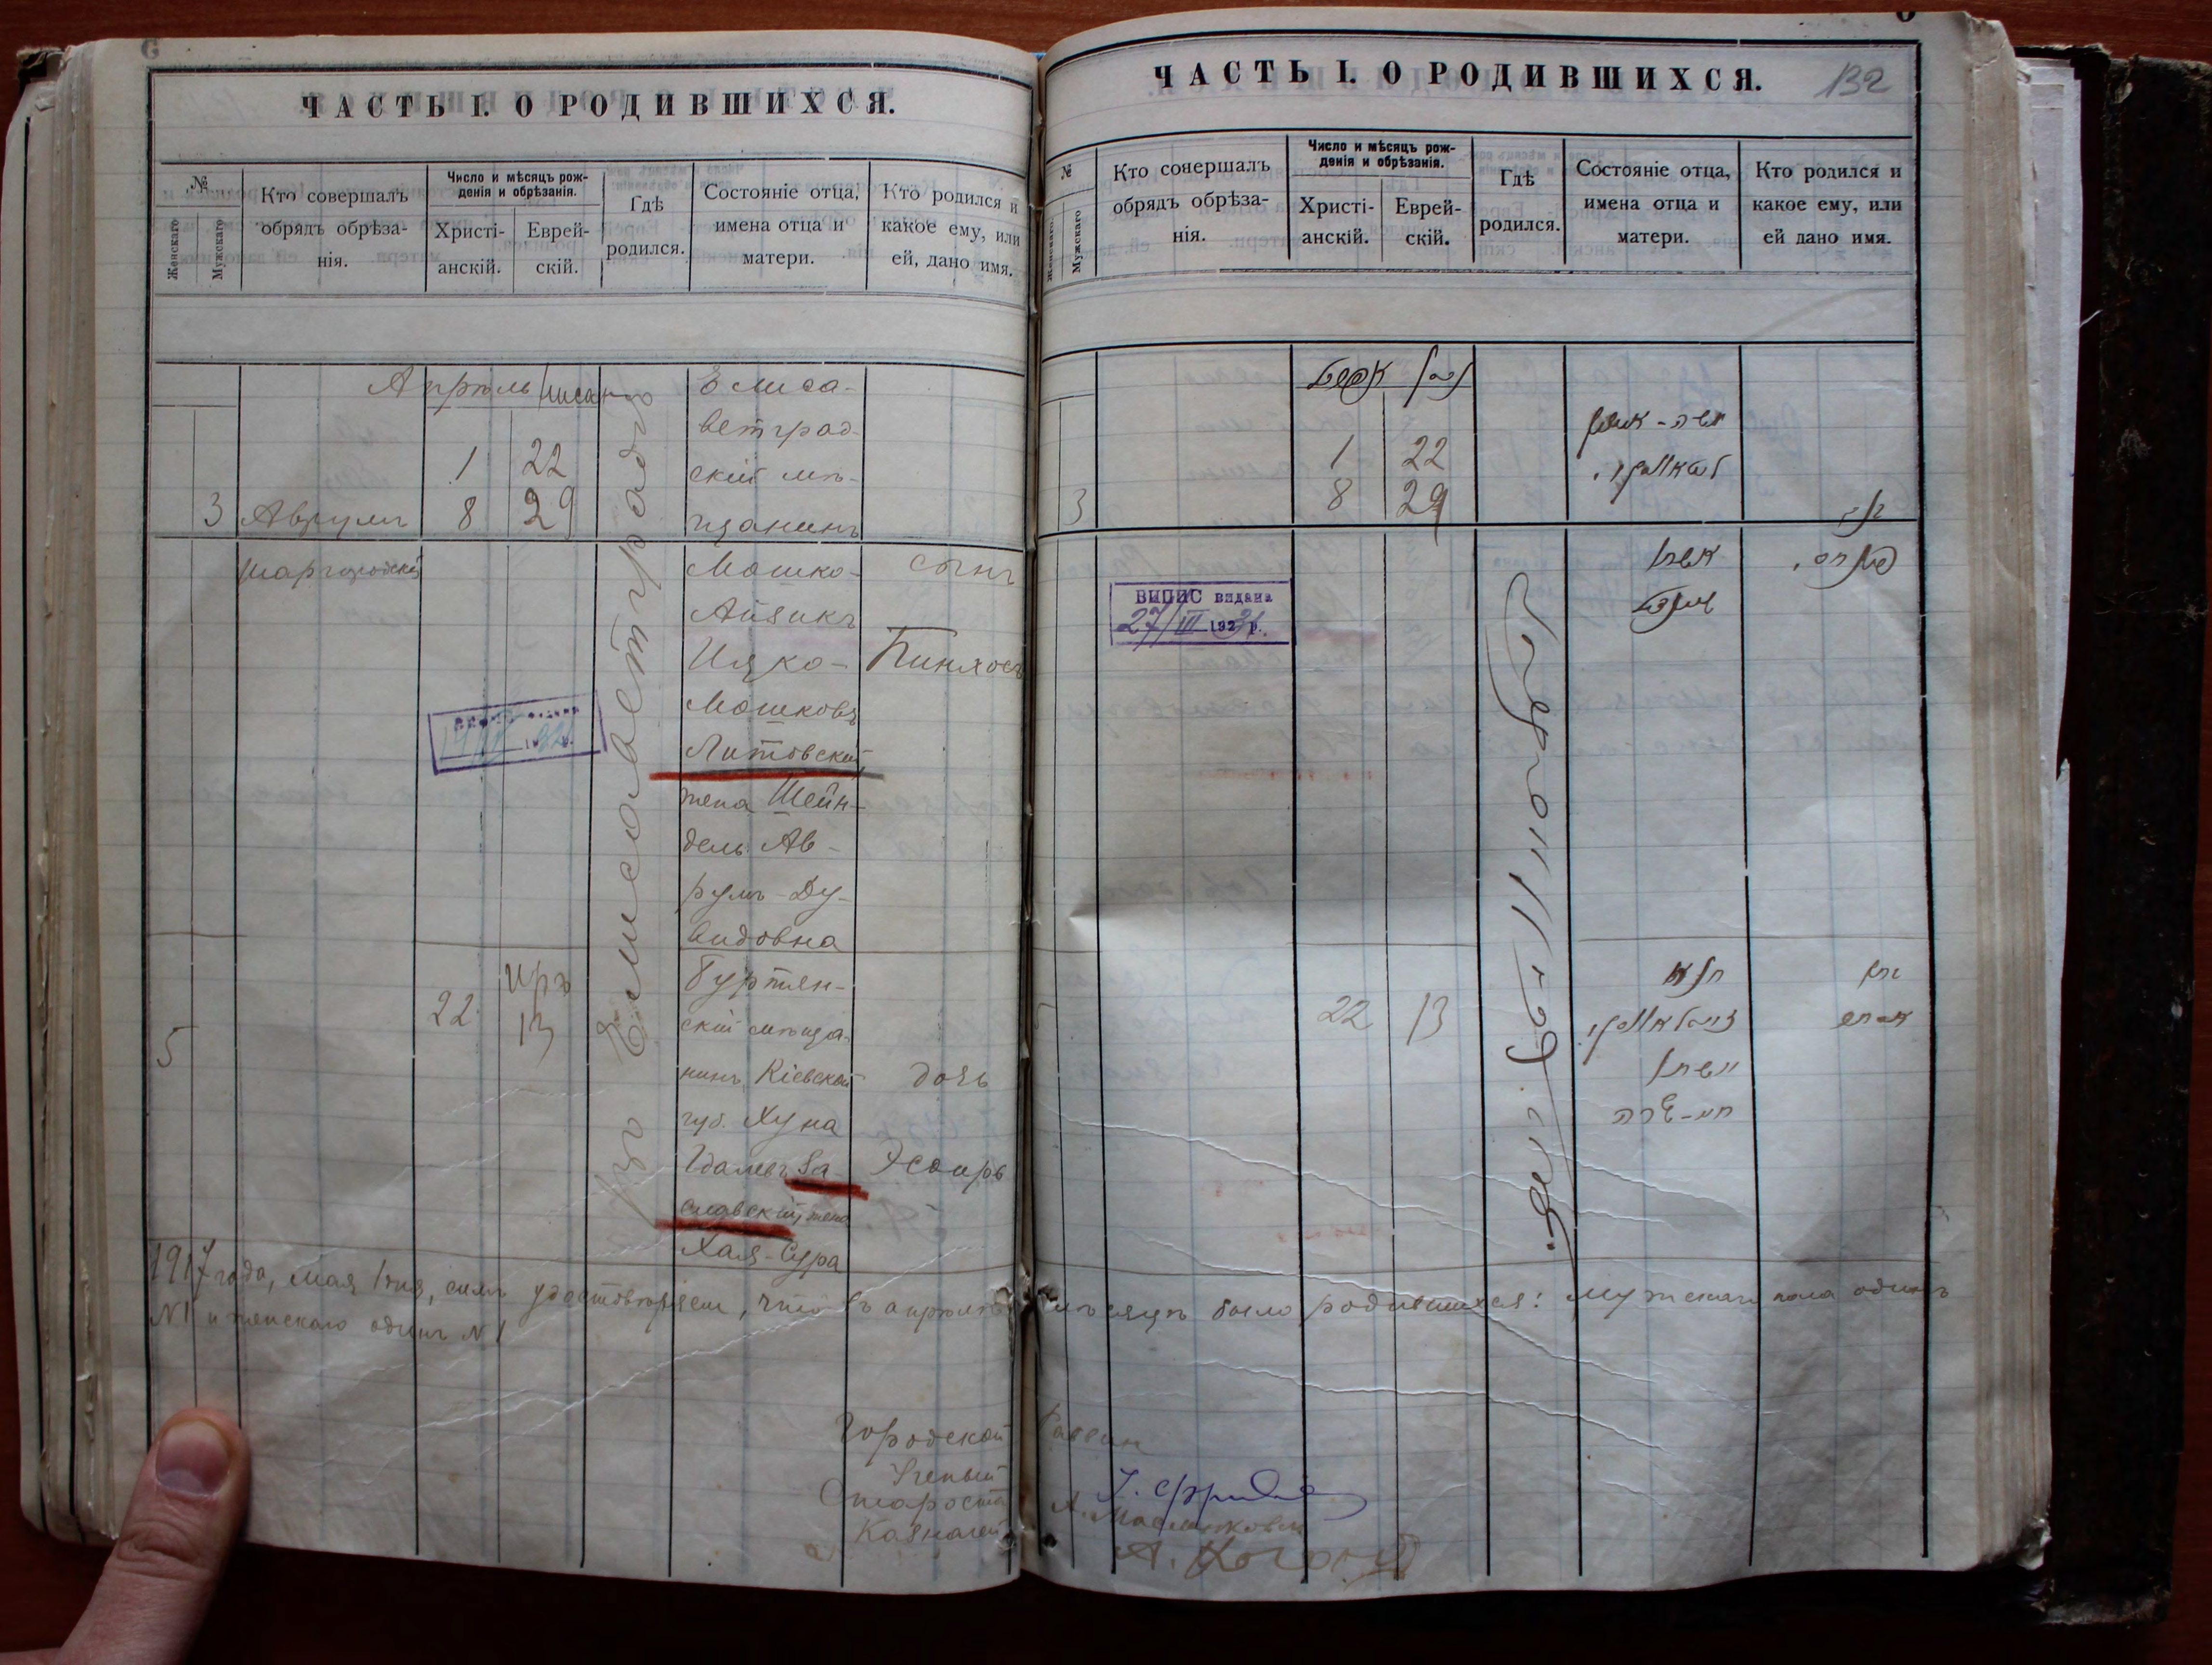 ЧАСТЬ I. О РОДИВШИХСЯ.
№
Женскаго
Мужскаго
Кто совершалъ
обрядъ обрѣза-
нія.
Число и мѣсяцъ рож-
денія и обрѣзанія.
Христі-
анскій.
Еврей-
скій.
Гдѣ
родился.
Состояніе отца,
имена отца и
матери.
Кто родился и
какое ему, или
ей, дано имя.
Апрѣль
Нисанъ
3
Аврумъ
Шаргородскій
1
22
8
29
Въ Елисаветградѣ
Елиса-
ветград-
скій мѣ-
щанинъ
Мошко-
Айзикъ
Ицко-
Мошковъ
Литовскій
жена Шейн-
дель Ав-
румъ-Ду-
видовна
сынъ
Пинхосъ
5
22
Иръ
13
скій мѣща-
нинъ Кіевской
губ. Хуна
Гдалевъ За-
славскій жена
Хая-Сура
дочь
Эсѳирь
1917 года, мая 1 дня, симъ удостовѣряем, что въ апрѣлѣ мѣсяцѣ было родившихся: мужскаго пола одинъ
№1 и женскаго одинъ №1
Городской Раввин
Ученый
Староста
Казначей
ЧАСТЬ I. О РОДИВШИХСЯ.
132
№
Женскаго
Мужскаго
Кто совершалъ
обрядъ обрѣза-
нія.
Число и мѣсяцъ рож-
денія и обрѣзанія.
Христі-
анскій.
Еврей-
скій.
Гдѣ
родился.
Состояніе отца,
имена отца и
матери.
Кто родился и
какое ему, или
ей дано имя.
3
1
22
8
29
משה-אייזיק
בן
פנחס
ВЫПИС видана
27/III 193
אשתו
22
13
חונא
אשתו
חי-שרה
בת
אסתר